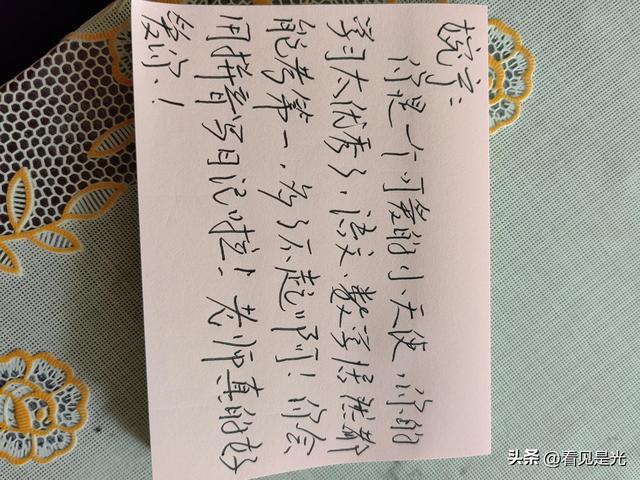 婉宁：
你是一个可爱的小天使，你的
学习太优秀了，语文、数学居然都
能考第一，多了不起啊！你会
用拼音写日记啦！老师真的好
爱你！
头条 @看见是光